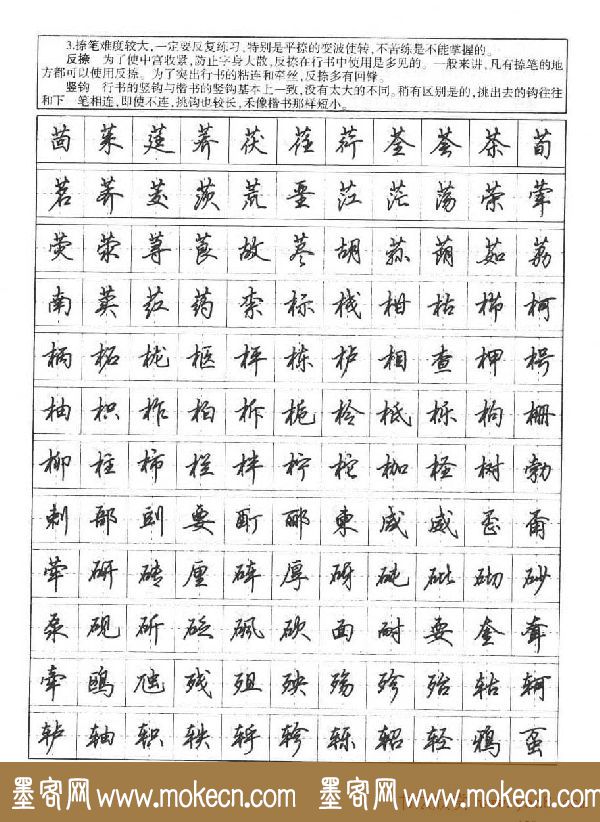 3.捺笔难度较大,一定要反复练习,特别是平捺的变波使转,不苦练是不能掌握的。
反捺 为了使中宫收紧,防止字身大散,反捺在行书中使用是多见的。一般来讲,凡有捺笔的地
方都可以使用反捺。为了突出行书的粘连和牵丝,反捺多有回锋。
竖钩 行书的竖钩与楷书的竖钩基本上一致,没有太大的不同。稍有区别是的,挑出去的钩往往
和下一笔相连,即使不连,挑钩也较长,不像楷书那样短小。
茴 茱 莛 荞 茯 荏 荇 荃 荟 茶 荀
茗 荠 茭 茨 荒 垩 茳 茫 荡 荣 荤
荧 荥 荨 茛 故 荩 胡 荪 荫 茹 荔
南 荬 荭 药 柰 标 栈 柑 枯 栉 柯
柄 柘 栊 柩 枰 栋 栌 相 查 柙 枵
柚 枳 柞 柏 柝 栀 柃 柢 栎 枸 栅
柳 柱 柿 栏 柈 柠 柁 枷 柽 树 勃
刺 部 剅 要 酊 郦 柬 咸 威 歪 甭
研 砖 厘 砗 厚 砑 砘 砒 砌 砂
泵 砚 斫 砭 砜 砍 面 耐 耍 奎 耷
牵 鸥 虺 残 殂 殃 殇 殄 殆 轱 轲
轳 轴 轵 轶 轷 轸 轹 轺 轻 鸦 虿
墨客网 www.mokecn.com 墨客网 www.mokecn.com